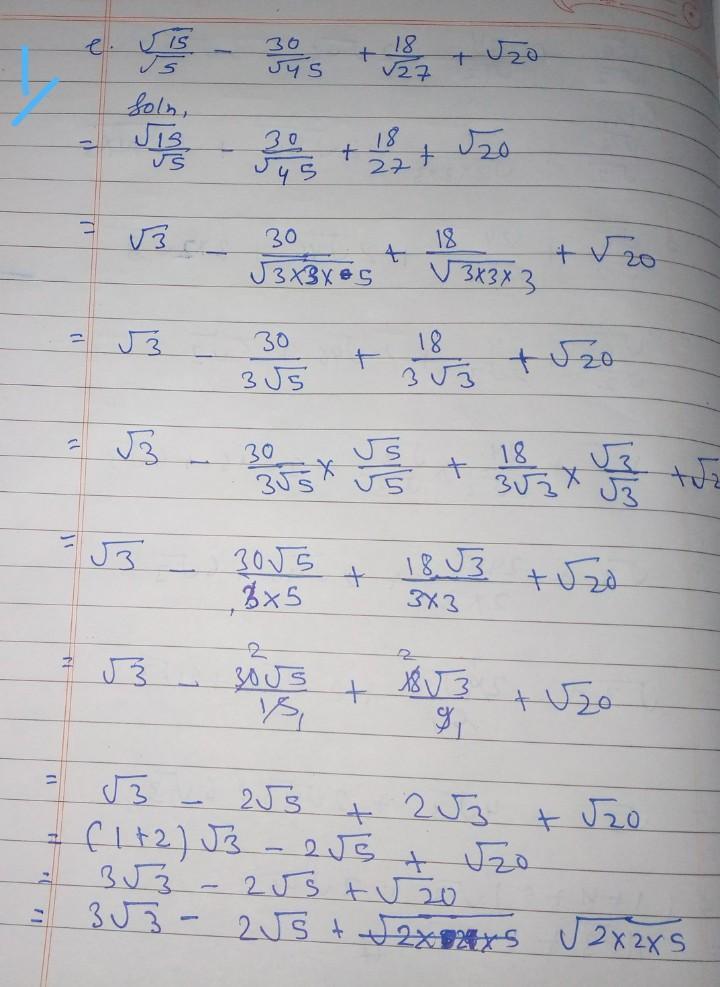 e. √15/√5 - 30/√45 + 18/√27 + √20
Soln,
= √15/√5 - 30/√45 + 18/27 + √20
= √3 - 30/√3×3×5 + 18/√3×3×3 + √20
= √3 - 30/3√5 + 18/3√3 + √20
= √3 - 30/3√5 × √5/√5 + 18/3√3 × √3/√3 + √2
= √3 - 30√5/3×5 + 18√3/3×3 + √20
= √3 - 2 30√5/15 1 + 2 18√3/9 1 + √20
= √3 - 2√5 + 2√3 + √20
= (1+2)√3 - 2√5 + √20
= 3√3 - 2√5 + √20
= 3√3 - 2√5 + √2×2×5